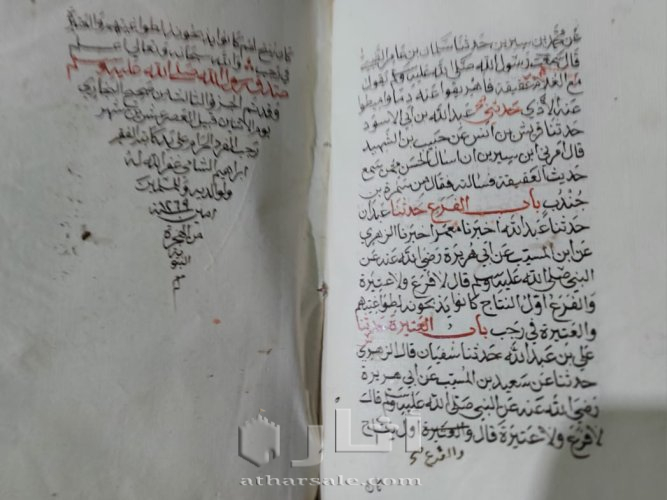 عن محمد بن سيرين حدثنا سلمان بن عامر الضبي
قال سمعت رسول الله صلى الله عليه وسلم يقول
مع الغلام عقيقة فاهريقوا عنه دما واميطوا
عنه الاذى حدثني عبد الله بن ابي الاسود
حدثنا قريش بن انس عن حبيب بن الشهيد
قال امرني ابن سيرين ان اسأل الحسن ممن سمع
حديث العقيقة فسالته فقال من سمرة بن
جندب باب الفرع حدثنا عبدان
حدثنا عبد الله اخبرنا معمر اخبرنا الزهري
عن ابن المسيب عن ابي هريرة رضي الله عنه عن
النبي صلى الله عليه وسلم قال لا فرع ولا عتيرة
والفرع اول النتاج كانوا يذبحونه لطواغيتهم
والعتيرة في رجب باب العتيرة حدثنا
علي بن عبد الله حدثنا سفيان قال الزهري
حدثنا عن سعيد بن المسيب عن ابي هريرة
رضي الله عنه عن النبي صلى الله عليه وسلم قال
لا فرع ولا عتيرة قال والعتيرة اول نتاج
والفرع
كان
كان ينتج لهم كانوا يذبحونه لطواغيتهم والعتيرة
في رجب والله سبحانه وتعالى اعلم
صدق رسول الله صلى الله عليه وسلم
وقد تم الجزو الثالث من صحيح البخاري
يوم الاثنين قبيل العصر من شهر
رجب الفرد الحرام على يد كاتبه الفقير
ابراهيم الشافي غفر الله له
ولوالديه والمسلمين
امين ١٢٦٩ سنة
من الهجرة
النبوية
م
آثار
atharsale.com